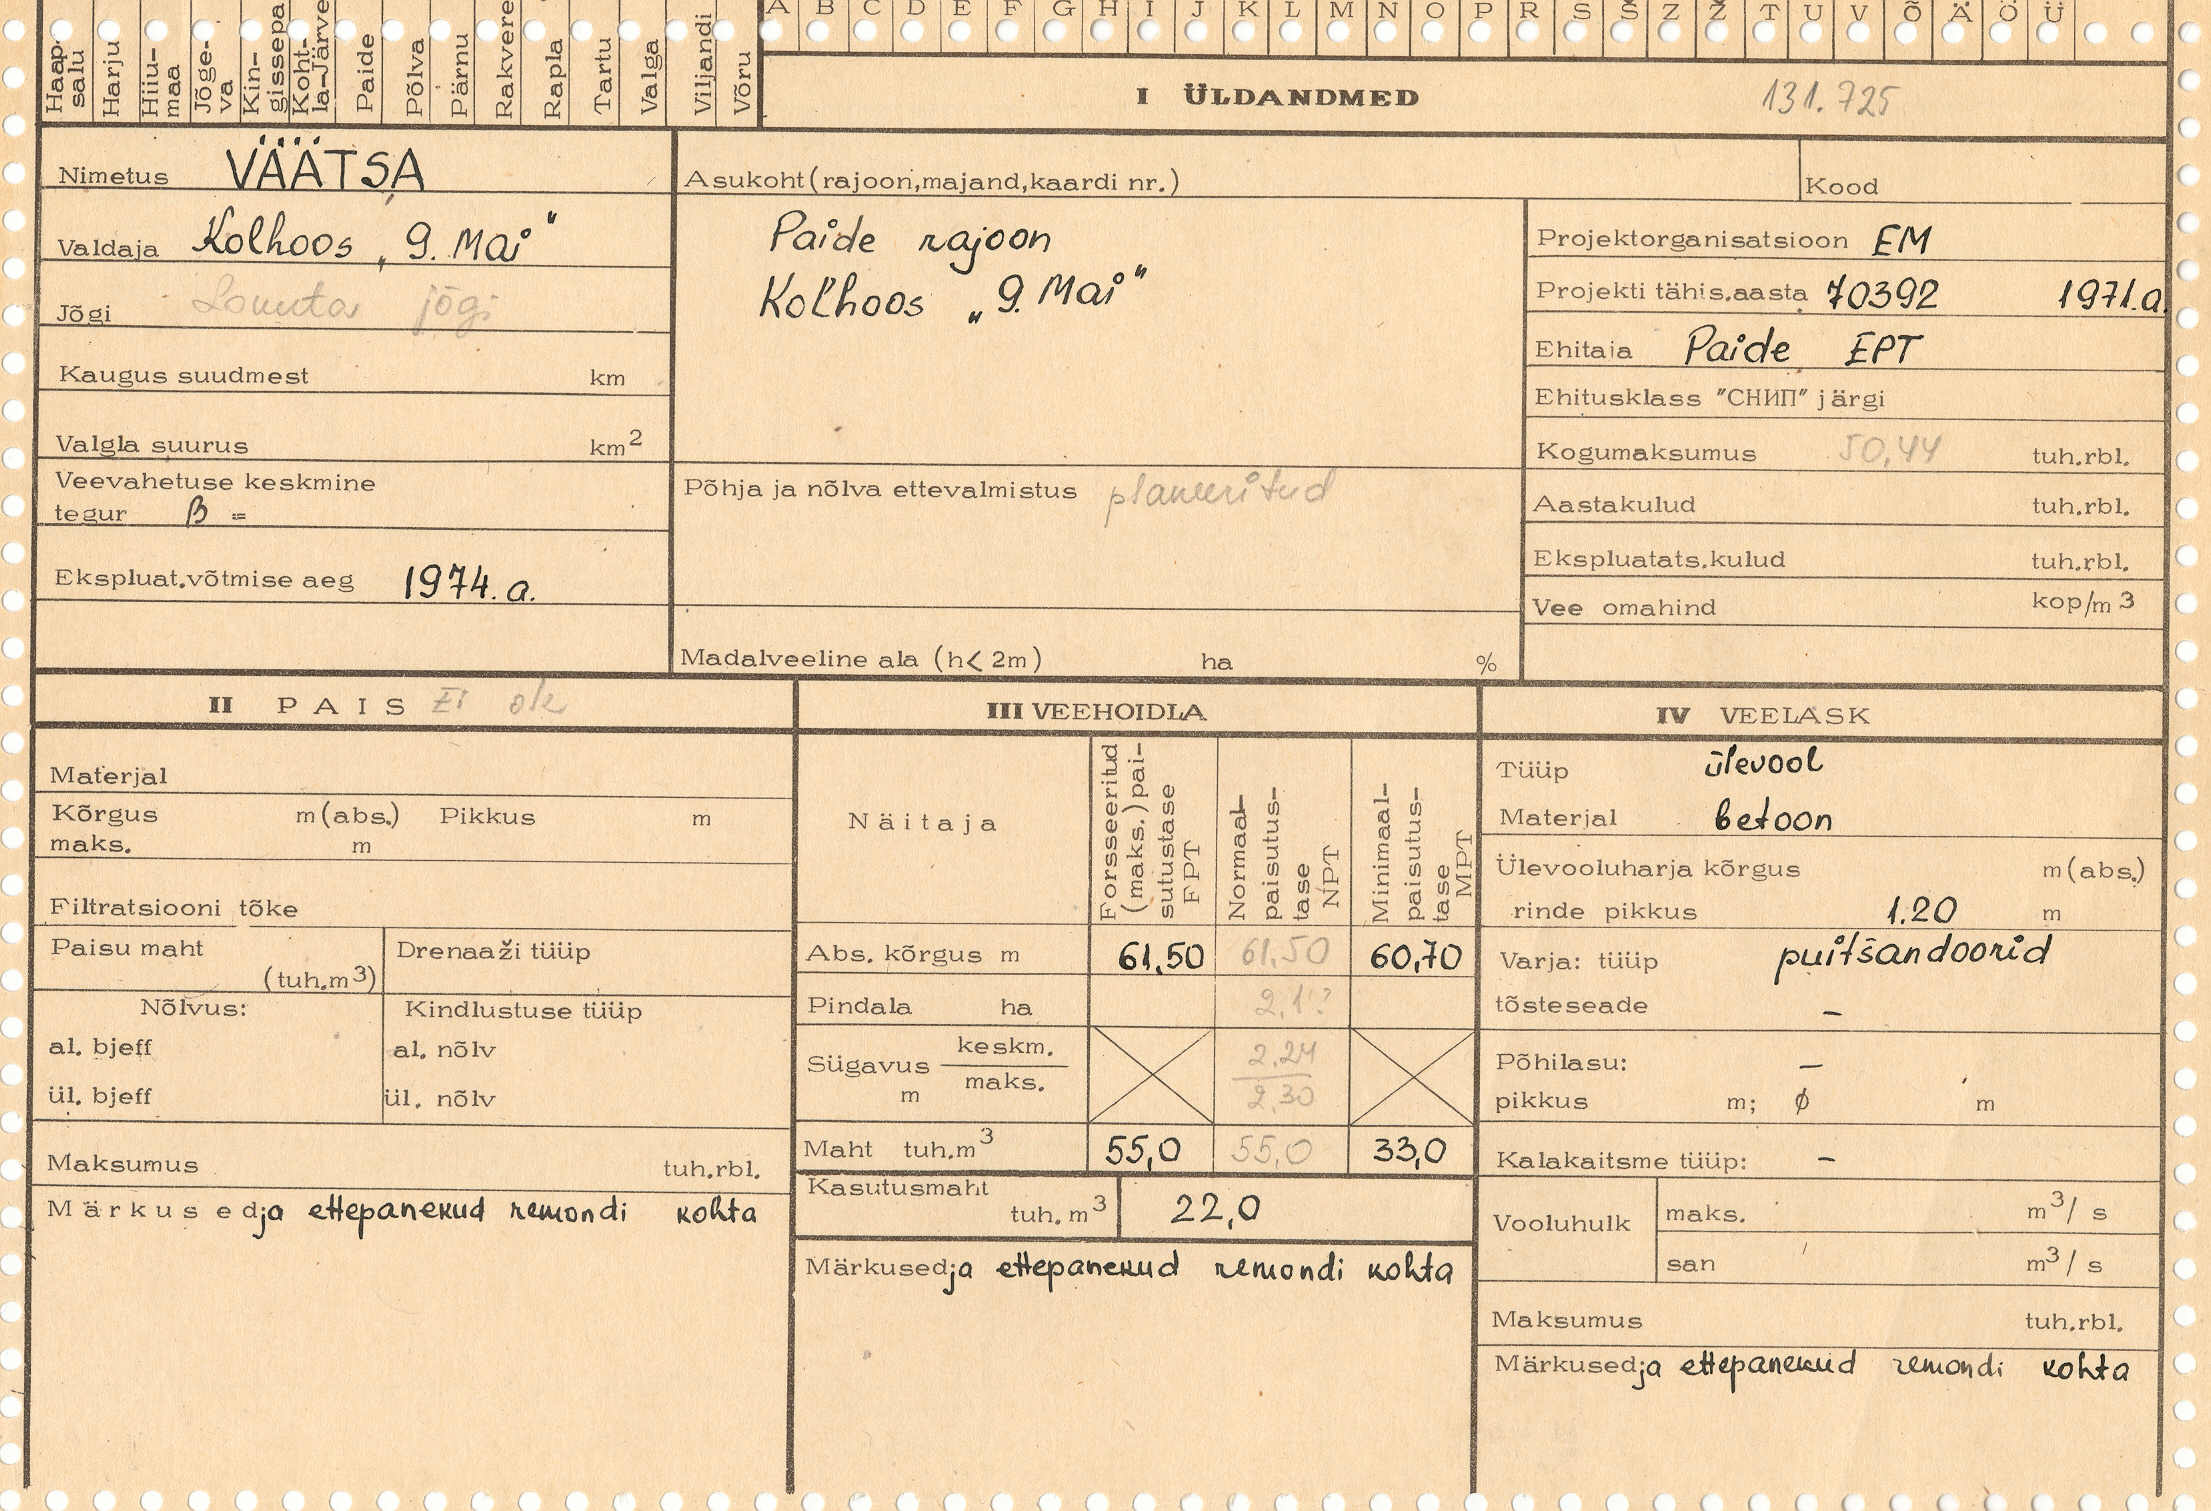 Haap-salu Harju Hiiu-maa Jõge-va Kin-gissepa Koht-la-Järve Paide Põlva Pärnu Rakvere Rapla Tartu Valga Viljandi Võru
A B C D E F G H I J K L M N O P R S Š Z Ž T U V Õ Ä Ö Ü
I ÜLDANDMED 131.725
Nimetus VÄÄTSA
Valdaja Kolhoos „9. Mai"
Jõgi jõgi
Kaugus suudmest km
Valgla suurus km2
Veevahetuse keskmine
tegur β =
Ekspluat.võtmise aeg 1974. a.
Asukoht(rajoon,majand,kaardi nr.)
Paide rajoon
Kolhoos „9. Mai"
Põhja ja nõlva ettevalmistus planeeritud
Madalveeline ala (h< 2m) ha %
Kood
Projektorganisatsioon EM
Projekti tähis.aasta 70392 1971.a
Ehitaja Paide EPT
Ehitusklass "СНИП" järgi
Kogumaksumus 50,44 tuh.rbl.
Aastakulud tuh.rbl.
Ekspluatats.kulud tuh.rbl.
Vee omahind kop/m3
II PAIS Ei ole
Materjal
Kõrgus m(abs.) Pikkus m
maks. m
Filtratsiooni tõke
Paisu maht Drenaaži tüüp
(tuh.m3)
Nõlvus: Kindlustuse tüüp
al. bjeff al. nõlv
ül. bjeff ül. nõlv
Maksumus tuh.rbl.
Märkused ja ettepanekud remondi kohta
III VEEHOIDLA
Näitaja
Forsseeritud (maks.) pai-sutustase FPT
Normaal-paisutus-tase NPT
Minimaal-paisutus-tase MPT
Abs. kõrgus m 61,50 61,50 60,70
Pindala ha 2,1?
Sügavus keskm. 2.24
m maks. 2,30
Maht tuh.m3 55,0 55,0 33,0
Kasutusmaht
tuh. m3 22,0
Märkused ja ettepanekud remondi kohta
IV VEELASK
Tüüp ülevool
Materjal betoon
Ülevooluharja kõrgus m(abs.)
rinde pikkus 1.20 m
Varja: tüüp puitšandoorid
tõsteseade –
Põhilasu: –
pikkus m; ϕ m
Kalakaitsme tüüp: –
Vooluhulk maks. m3/ s
san m3/ s
Maksumus tuh.rbl.
Märkused ja ettepanekud remondi kohta